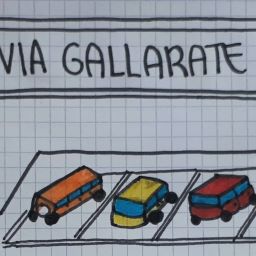 VIA GALLARATE